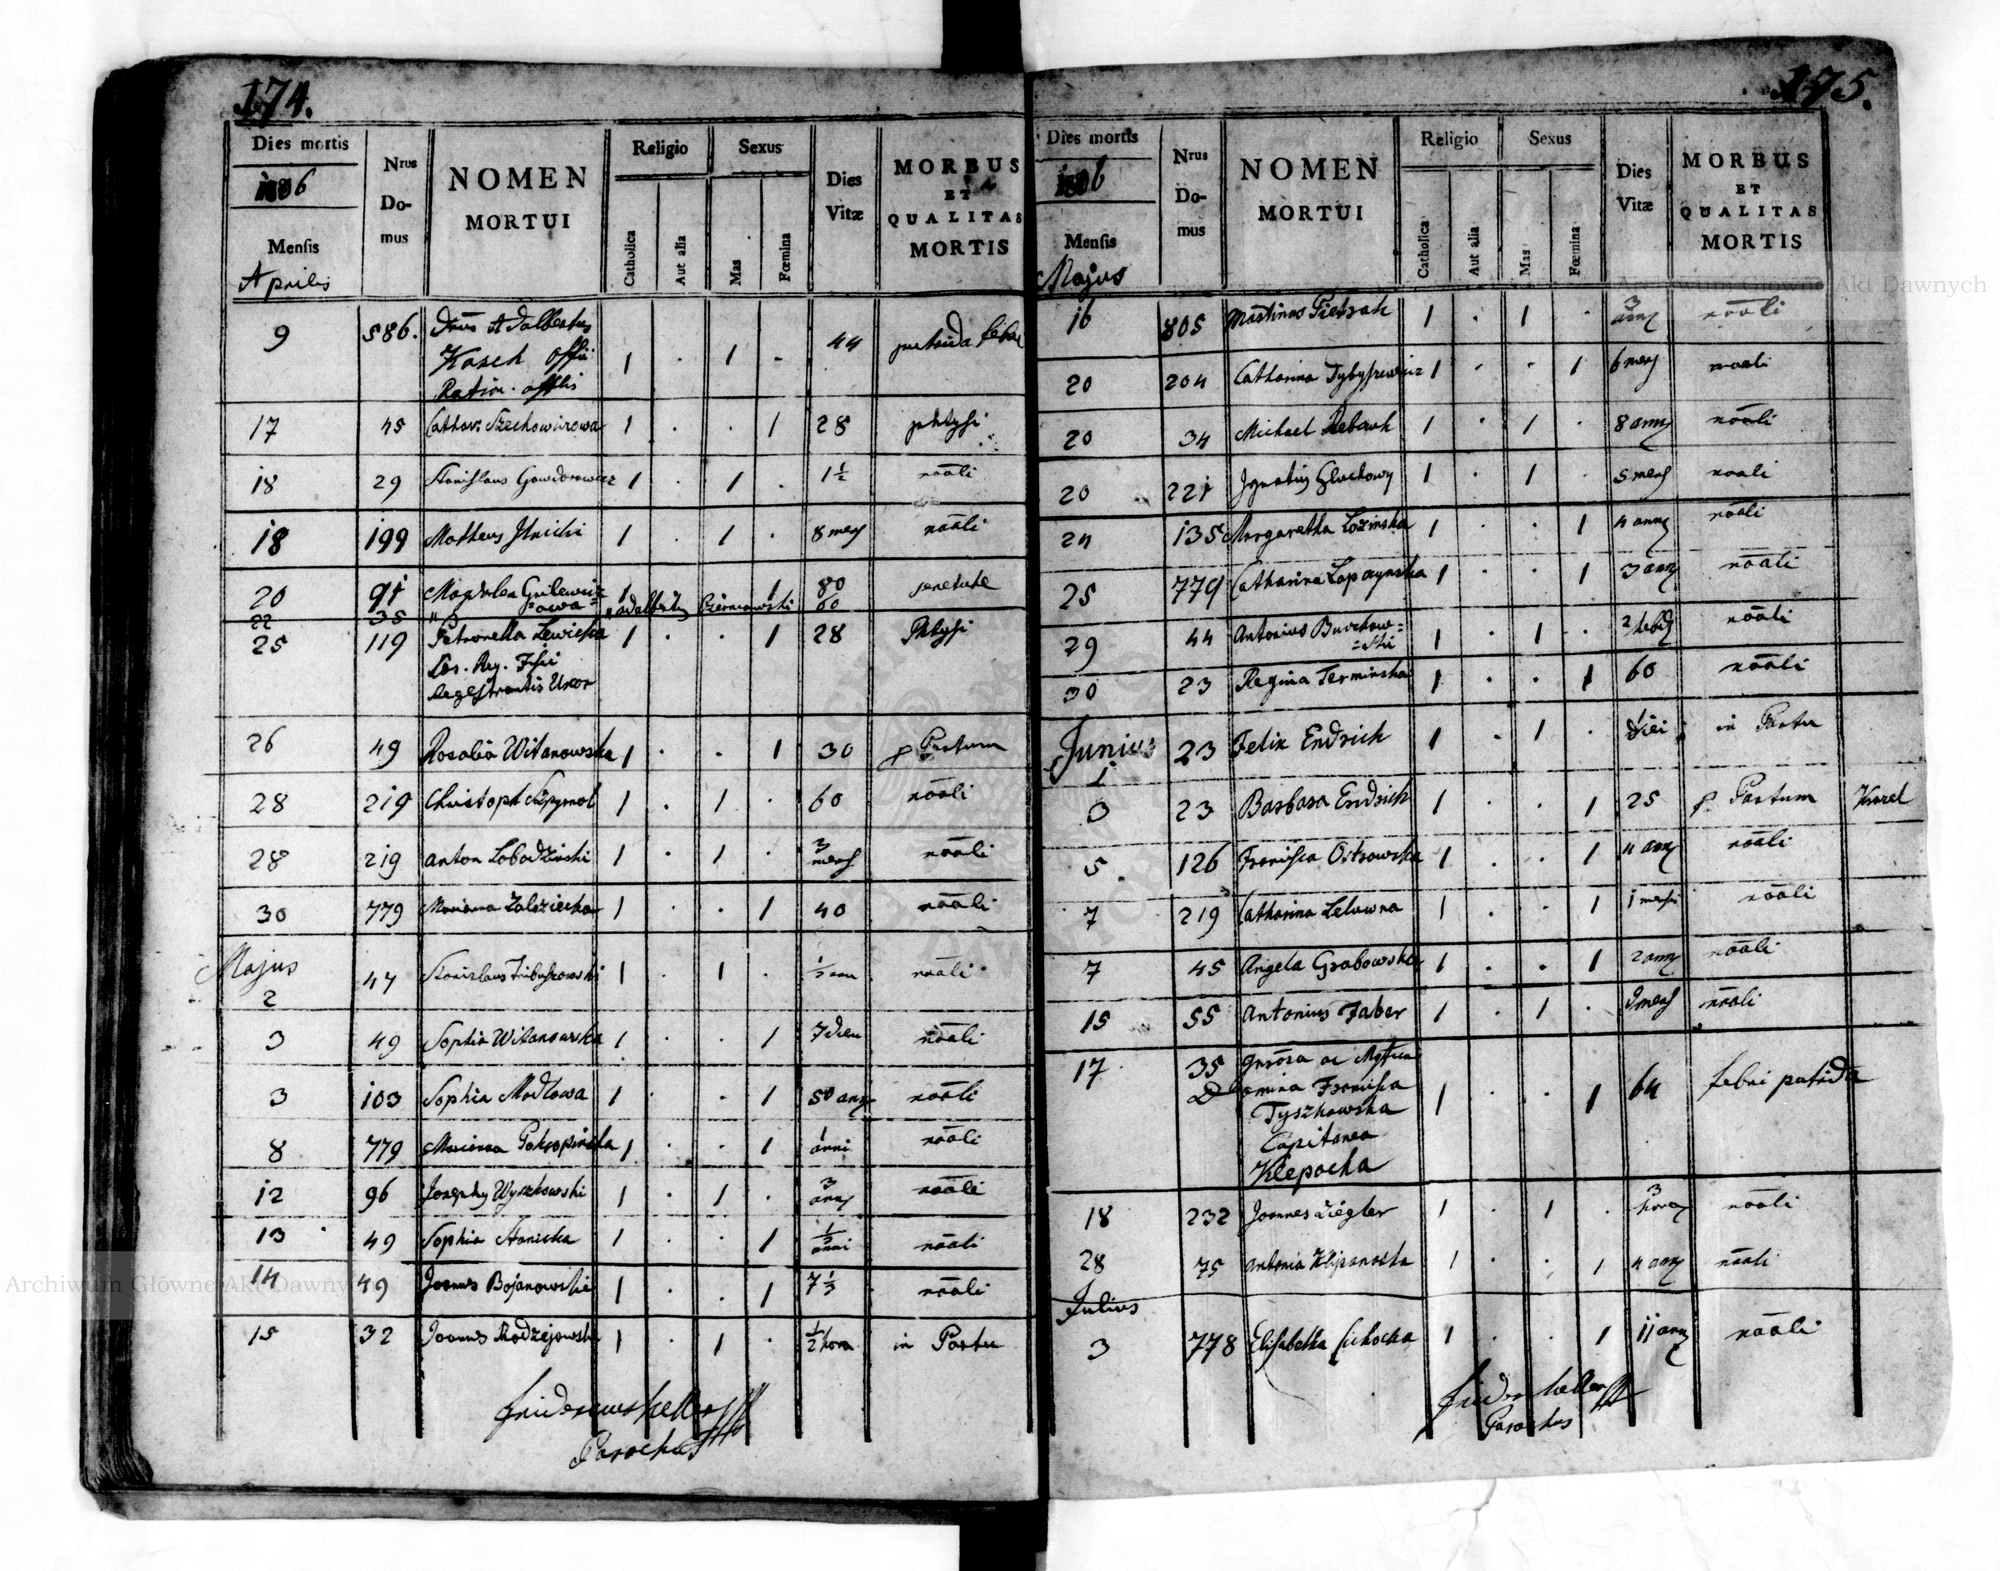 174.
Dies mortis
1806
Mensis
Aprilis
Nrus
Do-
mus
NOMEN
MORTUI
Religio
Catholica
Aut alia
Sexus
Mas
Fœmina
Dies
Vitæ
MORBUS
ET
QUALITAS
MORTIS
9 586. Dnus Adalbertus
Kasch offii
Ration. offlis 1 . 1 . 44 putrida febri
17 45 Cathar: 1 . . 1 28 phtysi
18 29 Stanislaus 1 . 1 . 1 1/2 nāāli
18 199 Matheus 1 . 1 . 8 mens nāāli
20 91 Magdalen Gnilewicz
=owa= 1 1 80 senetute
22 35 " Adalbertus Czerniawski 60
25 119 Petronella Lewicka 1 . . 1 28 Phtysi
Registrantis Uxor
26 49 Rosalia Witanowska 1 . . 1 30 p Partum
28 219 Christoph 1 . 1 . 60 nāāli
28 219 Anton Lobodzinski 1 . 1 . 3 mens nāāli
30 779 Marianna Zaleziecka 1 . . 1 40 nāāli
Majus
2 47 Stanislaus 1 . 1 . nāāli
3 49 Sophia Witanowska 1 . . 1 7 dieu nāāli
3 103 Sophia Modlowa 1 . . 1 50 ann nāāli
8 779 Marianna 1 . . 1 1 anni nāāli
12 96 Josephus Wyszkowski 1 . 1 . 3 ann nāāli
13 49 Sophia Stanicka 1 . . 1 1/2 anni nāāli
14 49 Joannes Bojanowski 1 . . 1 7 1/3 nāāli
15 32 Joannes Modzejowski 1 . 1 . 1/2 hora in Partu
Fridericus Keller
Parochus
175.
Dies mortis
1806
Mensis
Majus
Nrus
Do-
mus
NOMEN
MORTUI
Religio
Catholica
Aut alia
Sexus
Mas
Fœmina
Dies
Vitæ
MORBUS
ET
QUALITAS
MORTIS
16 805 Martinus Pietrak 1 . 1 . 3 ann nāāli
20 204 Catharina 1 . . 1 6 mens nāāli
20 34 Michael Rebark 1 . 1 . 8 ann nāāli
20 221 Ignatius Gluchowy 1 . 1 . 5 mens nāāli
24 135 Margaretha Lozinska 1 . . 1 4 ann nāāli
25 779 Catharina Lopaynska 1 . . 1 3 ann nāāli
29 44 Antonius Burchow=
=ski 1 . 1 . 2 nāāli
30 23 Regina Terminska 1 . . 1 60 nāāli
Junius
1 23 Felix Endrich 1 . 1 . 1 diei in Partu
3 23 Barbara Endrich 1 . . 1 25 p Partum
5 126 Francisca Ostrowska 1 . . 1 4 ann nāāli
7 219 Catharina Lelowna 1 . . 1 1 mensis nāāli
7 45 Angela Grabowska 1 . . 1 2 ann nāāli
15 55 Antonius Faber 1 . 1 . 9 mens nāāli
17 35 Gnrosa ac Mgfica
Domina Francisca
Tyszkowska
Capitanea
Klepacka 1 . . 1 64 febri putrida
18 232 Joannes Ziegler 1 . 1 . 3 horas nāāli
28 75 Antonia 1 . . 1 4 ann nāāli
Julius
3 778 Elisabetha Cichocka 1 . . 1 11 ann nāāli
Frider Keller
Parochus
Archiwum Główne Akt Dawnych
Archiwum Główne Akt Dawnych